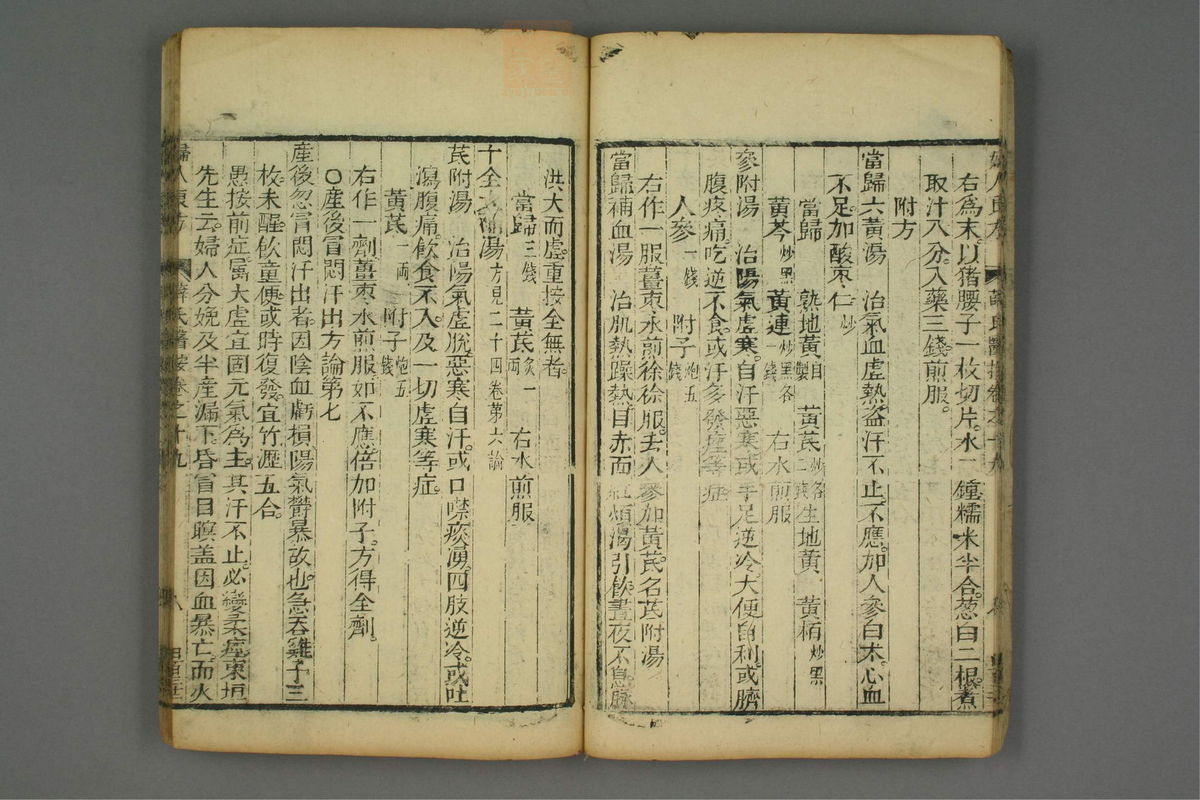 右爲末。以猪腰子一枚切片。水一鍾糯米半合。葱白二根。煮
取汁八分。入藥三錢煎服。
附方
當歸六黃湯 治氣血虛熱盜汗不止。不應。加人參白朮。心血
不足。加酸棗仁炒
當歸 熟地黃自製 黃芪炒各二錢 生地黃 黃栢炒黑
黃芩炒黑 黃連炒黑各一錢 右水煎服
參附湯 治陽氣虛寒。自汗惡寒。或手足逆冷。大便自利。或臍
腹疼痛。吃逆不食。或汗多發痙等症
人參一錢 附子炮五錢
右作一服薑棗水煎徐徐服。去人參加黃芪。名芪附湯
當歸補血湯 治肌熱躁熱。目赤面紅。煩渴引飲。晝夜不息。脉
洪大而虛。重按全無者。
當歸三錢 黃芪炙一兩 右水煎服
十全大補湯方見二十四卷第六論
芪附湯 治陽氣虛脫。惡寒自汗。或口噤痰湧。四肢逆冷。或吐
瀉腹痛。飲食不入。及一切虛寒等症。
黃芪一兩 附子炮五錢
右作一劑。薑棗水煎服。如不應。倍加附子。方得全劑。
〇產後冒悶汗出方論第七
產後忽冒悶汗出者。因陰血虧損。陽氣鬱暴故也。急吞雞子三
枚。未醒。飲童便。或時復發。宜竹瀝五合。
愚按前症。屬大虛。宜固元氣爲主。其汗不止。必變柔痙。東垣
先生云。婦人分娩及半產漏下。昏冒目瞑。盖因血暴亡。而火
婦人良方 薛氏醫按卷之十九 八